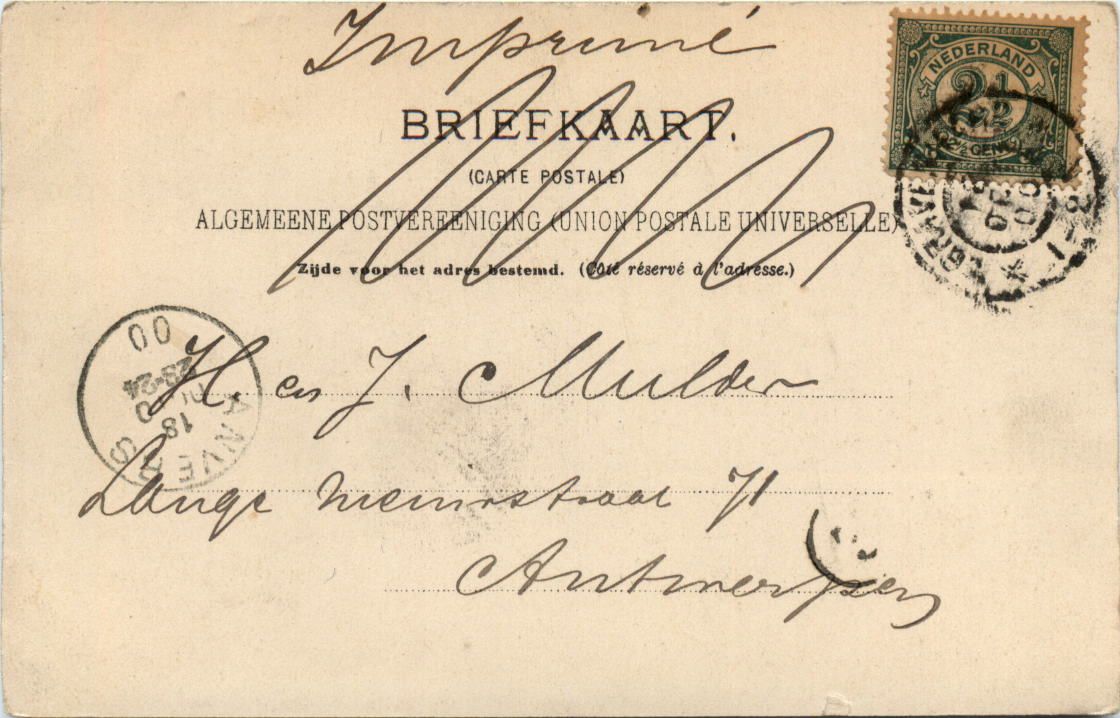 Imprimé
NEDERLAND
2 1/2
BRIEFKAART.
(CARTE POSTALE)
ALGEMEENE POSTVEREENIGING (UNION POSTALE UNIVERSELLE)
Zijde voor het adres bestemd. (Côté réservé à l'adresse.)
'S GRAVENHAGE
ANVERS
18
23-24
00
H. en J. Mulder
Lange nieuwstraat 71
Antwerpen